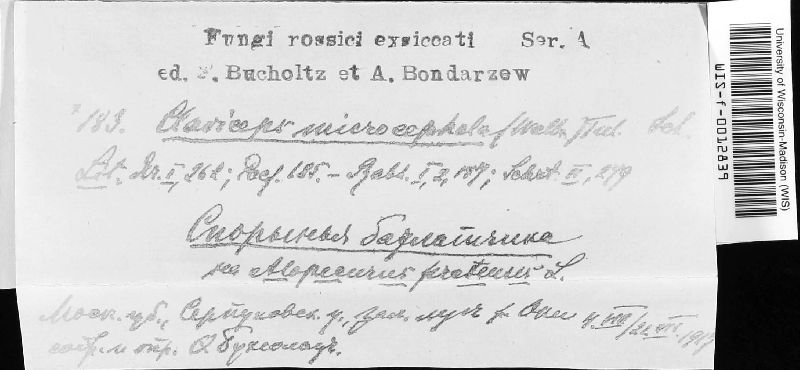 Fungi rossici exsiccati Ser. A
ed. F. Bucholtz et A. Bondarzew
183. Claviceps microcephala (Wallr.) Tul. Scl.
Lit. I, 262; 185. - Rabh. I, 2, II, 279
Спорынья
на Alopecurus pratensis L.
Моск. губ., Серпуховск. у., зал. луг р. Оки 1917
собр. и опр.
University of Wisconsin-Madison (WIS)
WIS-f-0012839